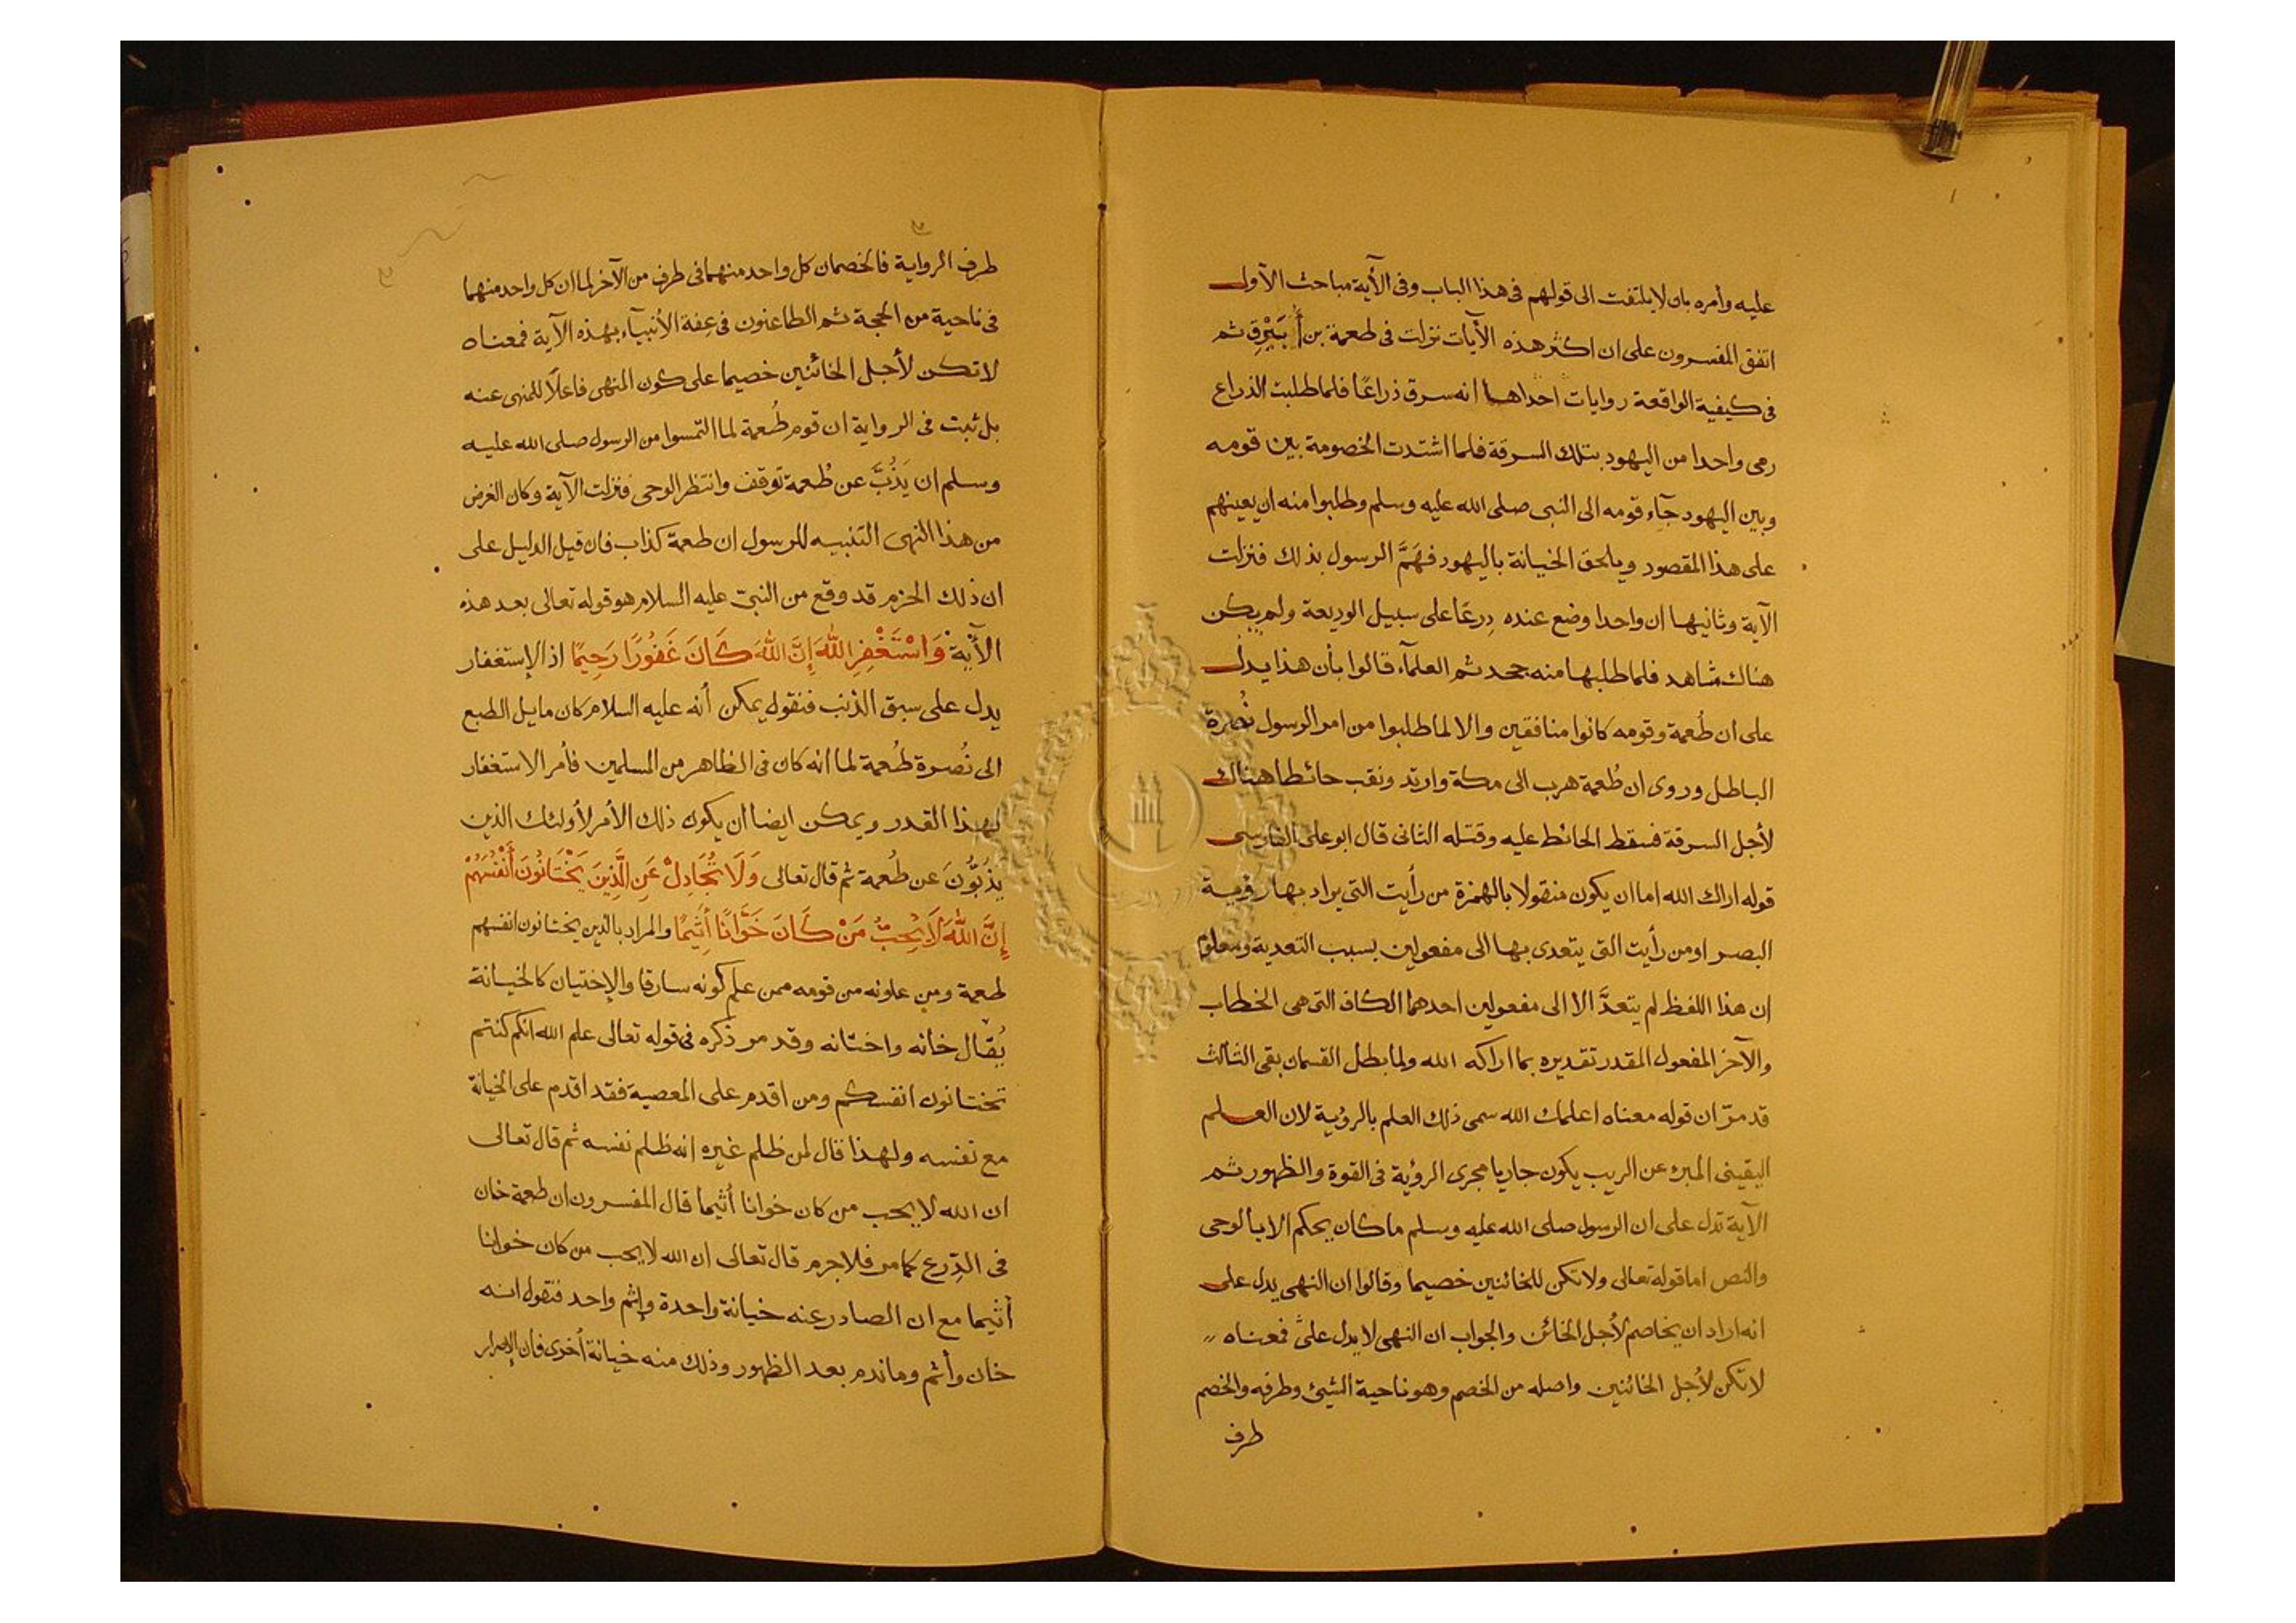 عليه وأمره بان لا يلتفت الى قولهم فى هذا الباب وفى الأية مباحث الأول
اتفق المفسرون على ان اكثر هذه الأيات نزلت فى طعمة بن أُبَيْرِق ثم
فى كيفية الواقعة روايات احداها انه سرق ذراعًا فلما طلبت الذراع
رمى واحدا من اليهود بتلك السرقة فلما اشتدت الخصومة بين قومه
وبين اليهود جآء قومه الى النبى صلى الله عليه وسلم وطلبوا منه ان يعينهم
على هذا المقصود ويلحق الخيانة باليهود فهَمَّ الرسول بذلك فنزلت
الآية وثانيها ان واحدا وضع عنده دِرعًا على سبيل الوديعة ولم يكن
هناك شاهد فلما طلبها منه جحد ثم العلمآء قالوا بأن هذا يدل
على ان طُعمة وقومه كانوا منافقين والا لما طلبوا من امر الرسول نُصرة
الباطل وروى ان طُعمة هرب الى مكة وارتد ونقب حائطا هناك
لأجل السرقة فسقط الحائط عليه وقتله الثانى قال ابو على الفارسى
قوله اراك الله اما ان يكون منقولا بالهمزة من رأيت التى يراد بها رؤية
البصر او من رأيت التى يتعدى بها الى مفعولين بسبب التعدية ومعلوم
ان هذا اللفظ لم يتعدَّ الا الى مفعولين احدهما الكاف التى هى الخطاب
والآخر المفعول المقدر تقديره بما اراكه الله ولما بطل القسمان بقى الثالث
قد مرّ ان قوله معناه اعلمك الله سمى ذلك العلم بالرؤية لان العلم
اليقينى المبرء عن الريب يكون جاريا مجرى الرؤية فى القوة والظهور ثم
الآية تدل على ان الرسول صلى الله عليه وسلم ما كان يحكم الا بالوحى
والنص اما قوله تعالى ولا تكن للخائنين خصيما وقالوا ان النهى يدل على
انه اراد ان يخاصم لأجل الخائن والجواب ان النهى لا يدل على فمعناه
لا تكن لأجل الخائنين واصله من الخصم وهو ناحية الشئ وطرفه والخصم
طرف
طرف الرواية فالخصمان كل واحد منهما فى طرف من الآخر لما ان كل واحد منهما
فى ناحية من الحجة ثم الطاعنون فى عفة الأنبيآء بهذه الآية فمعناه
لا تكن لأجل الخائنين خصيما على كون المنهى فاعلاً للمنهى عنه
بل ثبت فى الرواية ان قوم طُعمة لما التمسوا من الرسول صلى الله عليه
وسلم ان يَذُبَّ عن طُعمة توقف وانتظر الوحى فنزلت الآية وكان الغرض
من هذا النهى التنبيه للرسول ان طعمة كذاب فان قيل الدليل على
ان ذلك الحزم قد وقع من النبىّ عليه السلام هو قوله تعالى بعد هذه
الأية وَاسْتَغْفِرِ اللهَ إِنَّ اللهَ كَانَ غَفُورًا رَحِيمًا اذ الإستغفار
يدل على سبق الذنب فنقول يمكن أنه عليه السلام كان مايل الطبع
الى نُصرة طُعمة لما انه كان فى الظاهر من المسلمين فأمر الاستغفار
لهذا القدر ويمكن ايضا ان يكون ذلك الأمر لأولئك الذين
يَذُبُّونَ عن طُعمة ثم قال تعالى وَلَا تُجَادِلْ عَنِ الَّذِينَ يَخْتَانُونَ أَنْفُسَهُمْ
إِنَّ اللهَ لَا يُحِبُّ مَنْ كَانَ خَوَّانًا أَثِيمًا والمراد بالذين يختانون انفسهم
طعمة ومن عاونه من قومه ممن علم كونه سارقا والإختيان كالخيانة
يُقال خانه واختانه وقد مر ذكره فى قوله تعالى علم الله انكم كنتم
تختانون انفسكم ومن اقدم على المعصية فقد اقدم على الخيانة
مع نفسه ولهذا قال لمن ظلم غيره انه ظلم نفسه ثم قال تعالى
ان الله لا يحب من كان خوانا أثيما قال المفسرون ان طعمة خان
فى الدِرع كما مر فلا جرم قال تعالى ان الله لا يحب من كان خوانا
أثيما مع ان الصادر عنه خيانة واحدة وإثم واحد فنقول انه
خان وأثم وما ندم بعد الظهور وذلك منه خيانة أخرى فان الإصرار